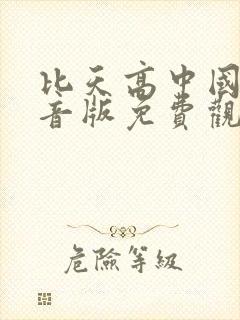 比天高中國
音版免費觀
危險等級